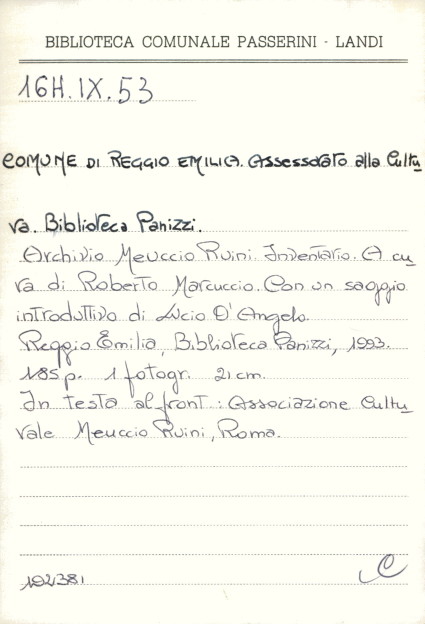 BIBLIOTECA COMUNALE PASSERINI - LANDI
16H.IX.53
COMUNE DI REGGIO EMILIA. Assessorato alla Cultu
ra. Biblioteca Panizzi.
Archivio Meuccio Ruini. Inventario. A cu
ra di Roberto Marcuccio. Con un saggio
introduttivo di Lucio D'Angelo.
Reggio Emilia, Biblioteca Panizzi, 1993.
185 p. 1 fotogr. 21 cm.
In testa al front.: Associazione Cultu
rale Meuccio Ruini, Roma.
192381 C